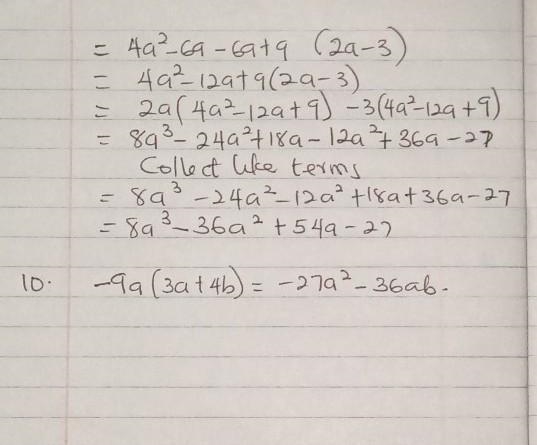 = 4a²-6a-6a+9 (2a-3)
= 4a²-12a+9(2a-3)
= 2a(4a²-12a+9) -3(4a²-12a+9)
= 8a³-24a²+18a-12a²+36a-27
Collect like terms
= 8a³-24a²-12a²+18a+36a-27
= 8a³-36a²+54a-27
10. -9a(3a+4b) = -27a²-36ab.